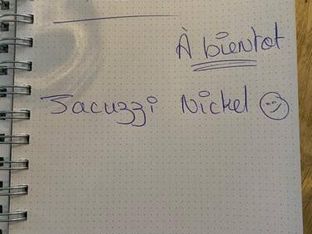 À bientot
Jacuzzi Nickel